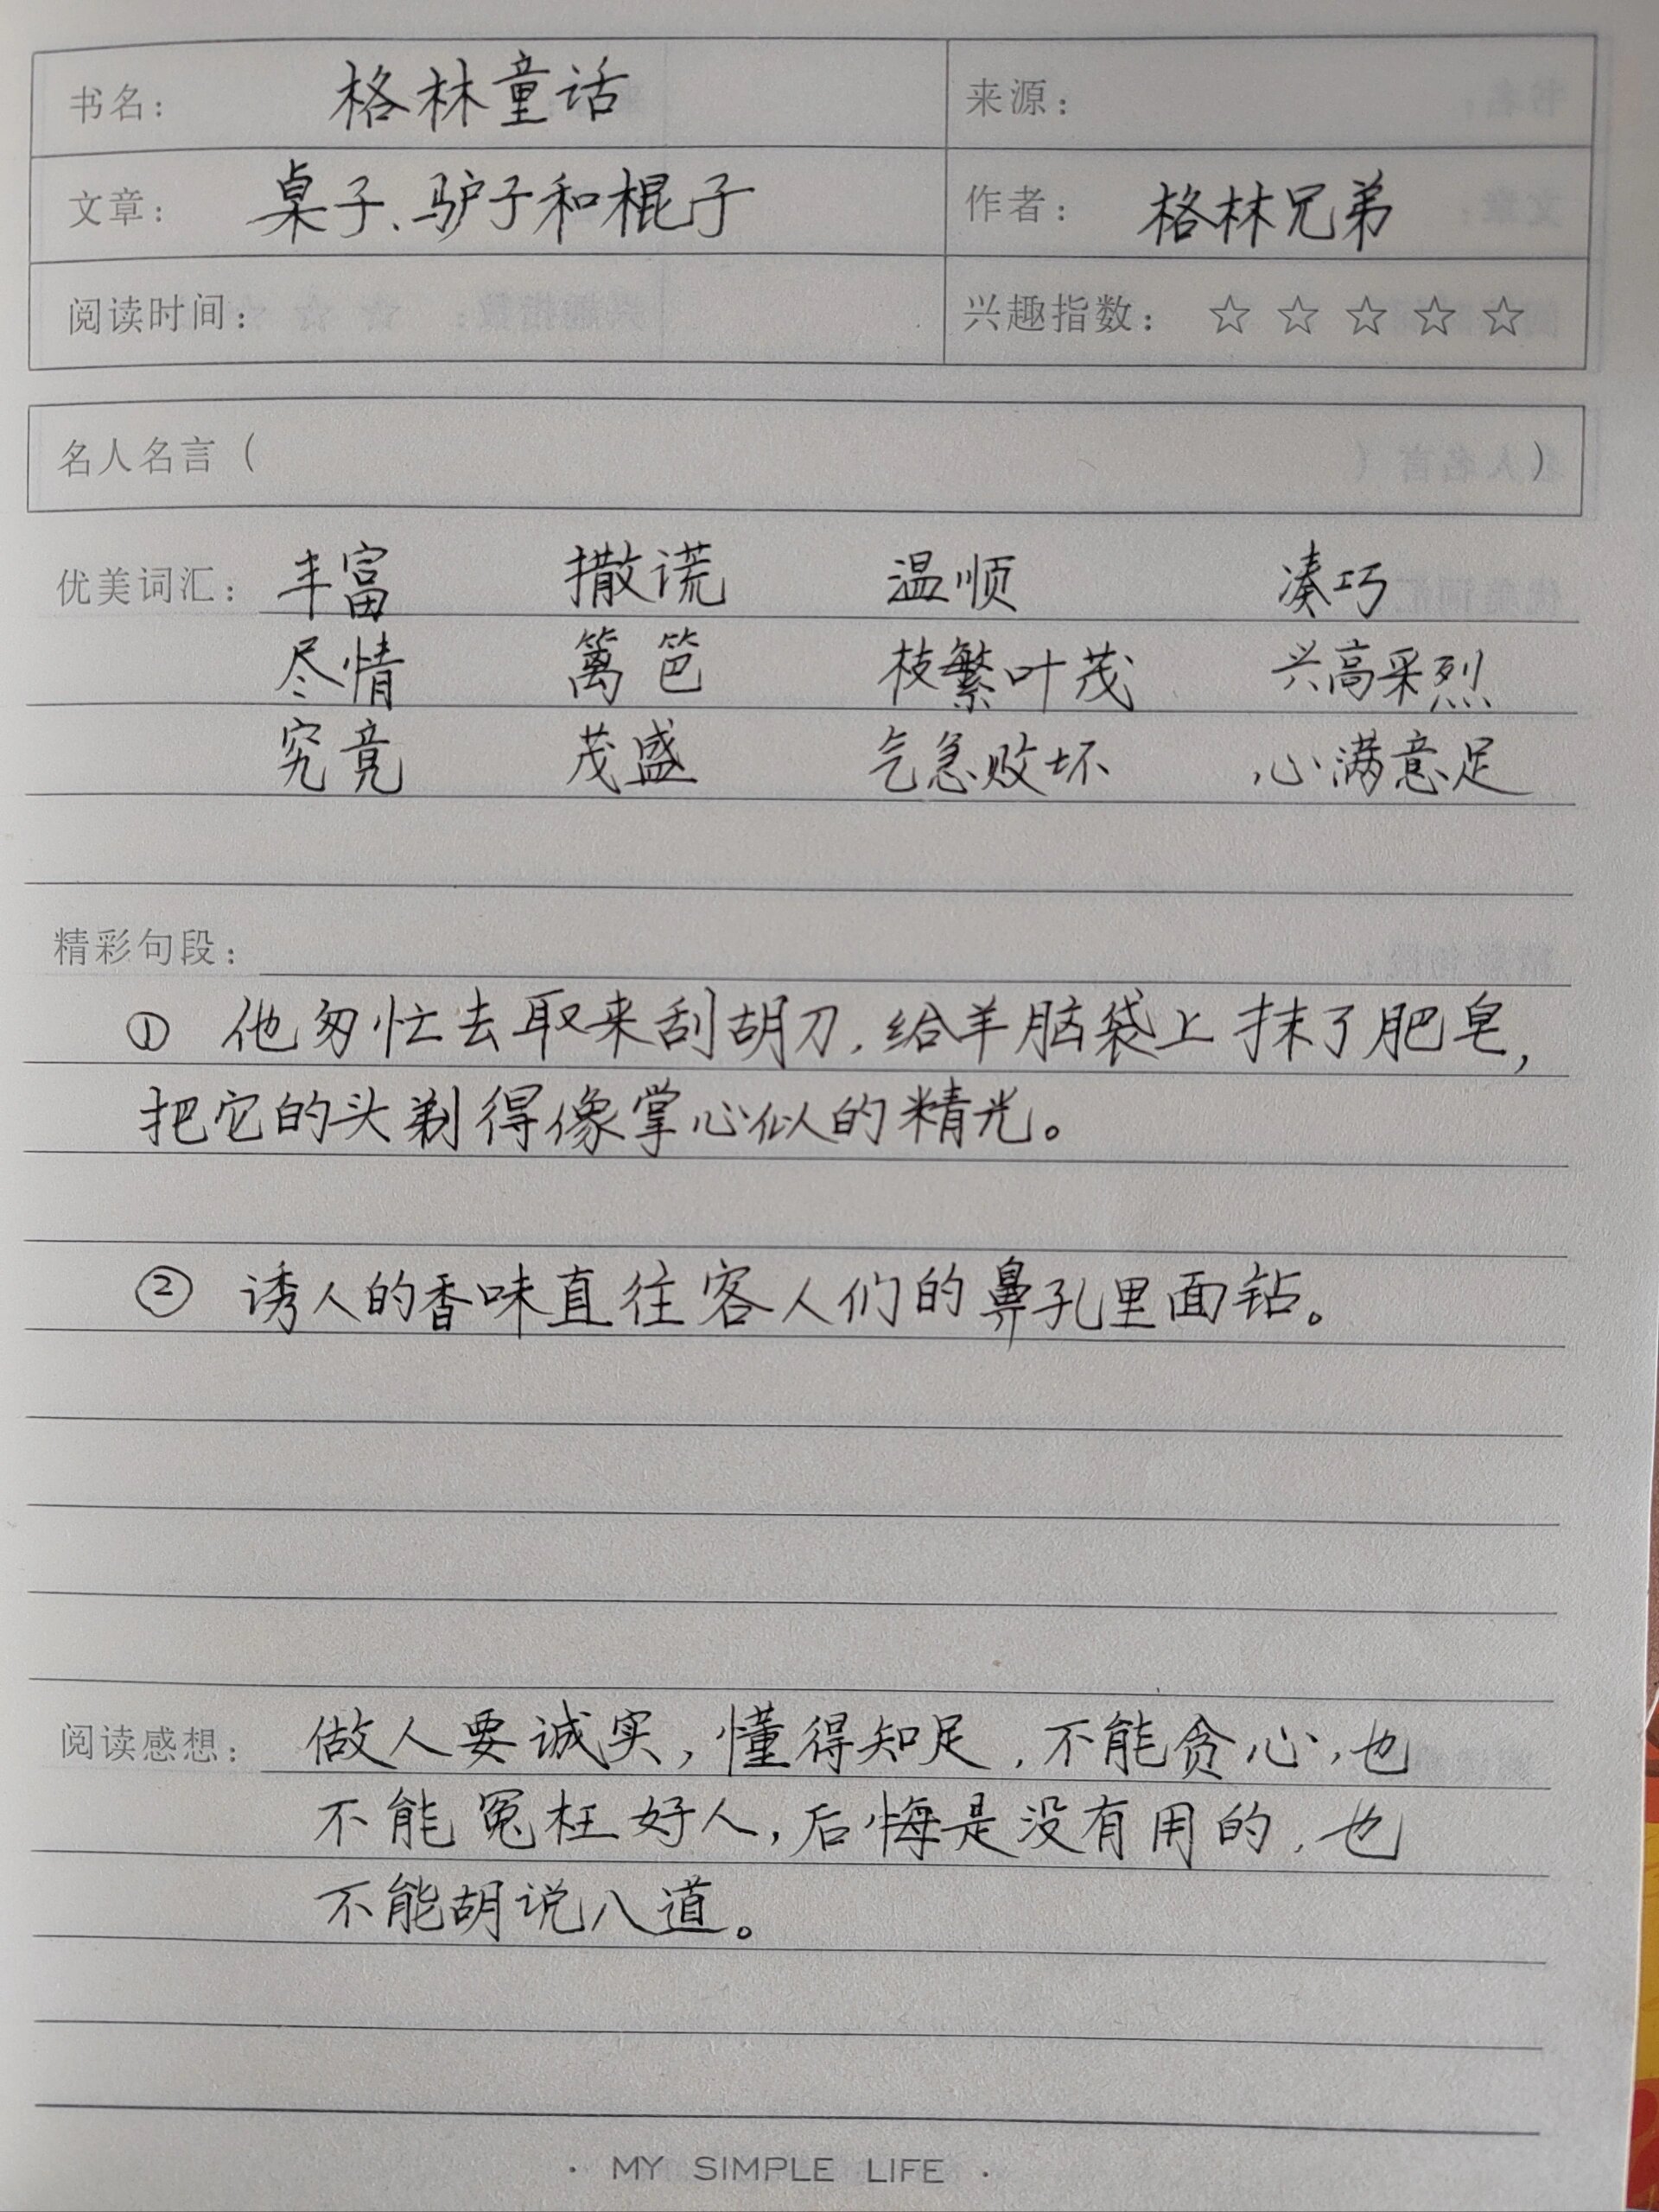 书名： 格林童话 来源：
文章： 桌子、驴子和棍子 作者： 格林兄弟
阅读时间： 兴趣指数： ☆ ☆ ☆ ☆ ☆
名人名言（ ）
优美词汇： 丰富 撒谎 温顺 凑巧
尽情 篱笆 枝繁叶茂 兴高采烈
究竟 茂盛 气急败坏 心满意足
精彩句段：
① 他匆忙去取来刮胡刀，给羊脑袋上抹了肥皂，
把它的头剃得像掌心似的精光。
② 诱人的香味直往客人们的鼻孔里面钻。
阅读感想： 做人要诚实，懂得知足，不能贪心，也
不能冤枉好人，后悔是没有用的，也
不能胡说八道。
· MY SIMPLE LIFE ·